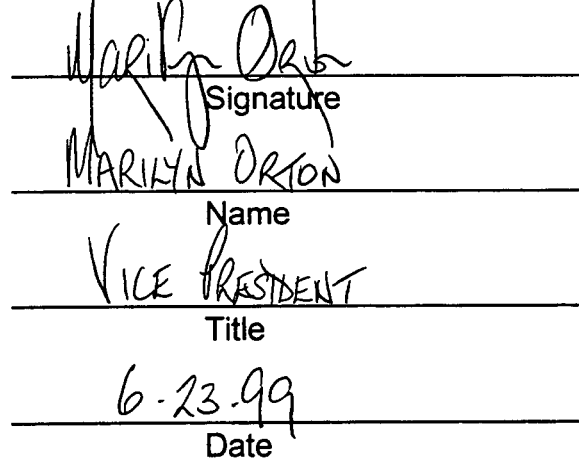 Marilyn Orton
Signature
MARILYN ORTON
Name
VICE PRESIDENT
Title
6-23-99
Date